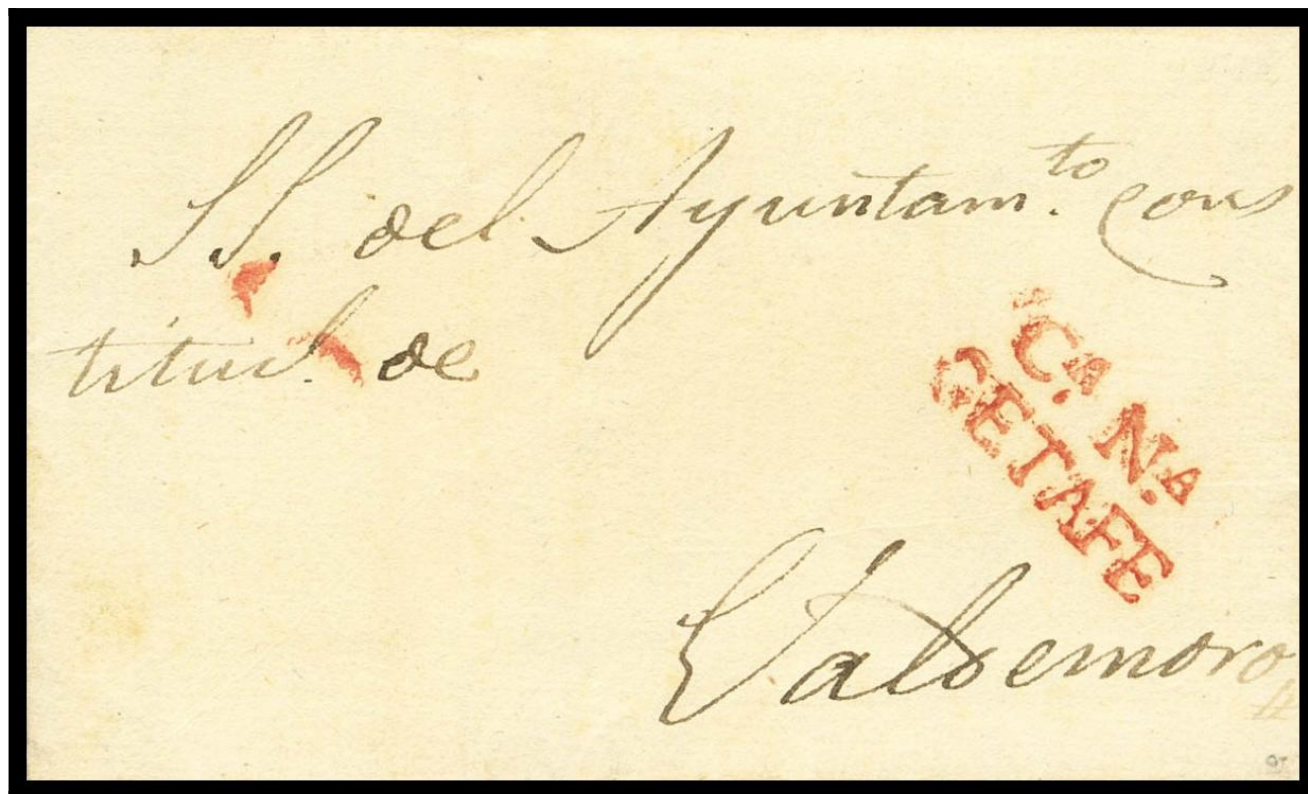 SS. del Ayuntam.to cons
titucl. de
C.A N.A
GETAFE
Valdemoro